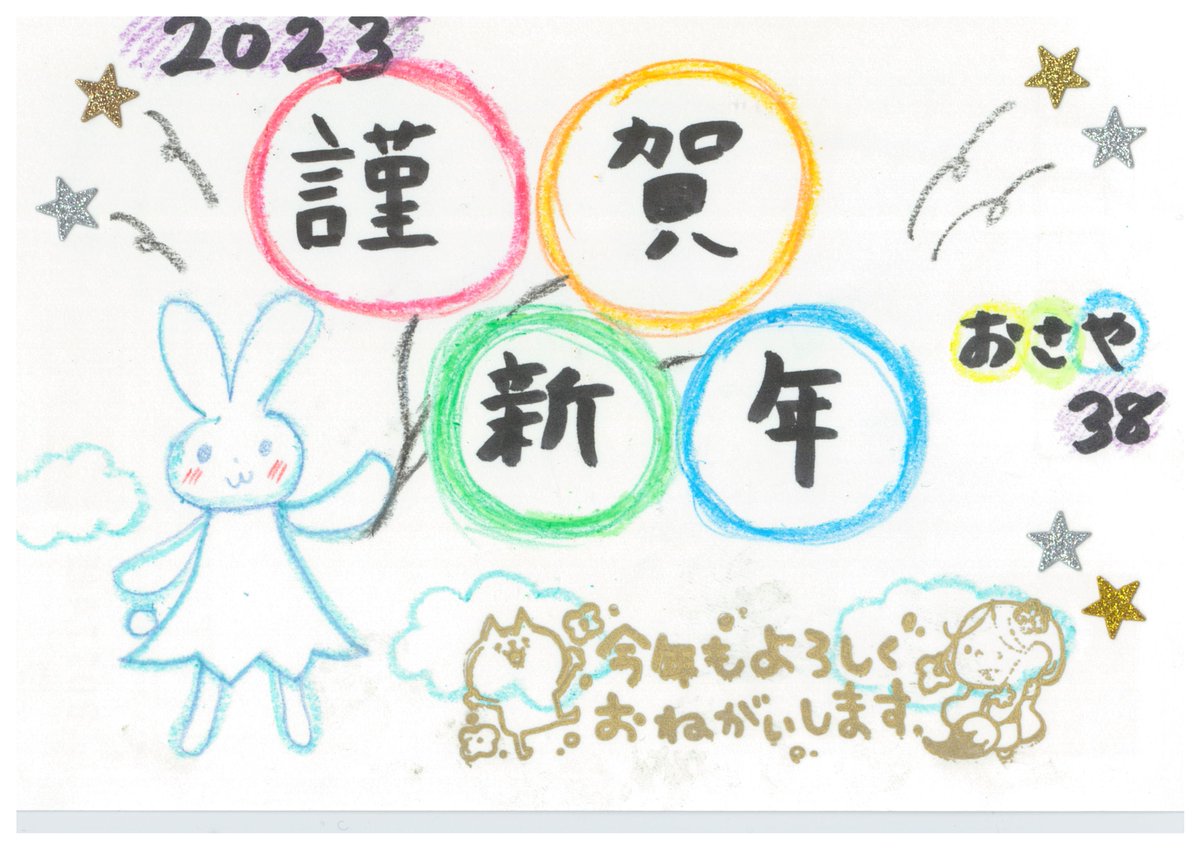 2023
謹賀
新年
おさや
38
今年もよろしく
おねがいします。